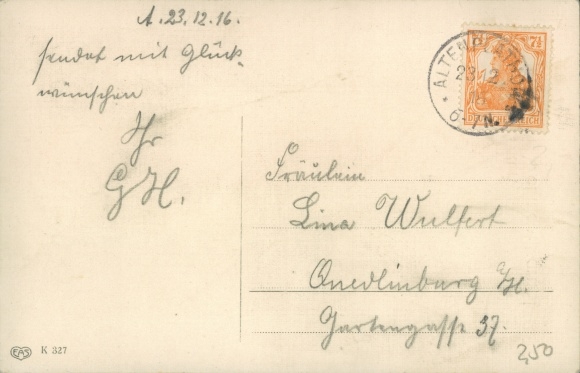 A. 23.12.16.
sendet mit Glück-
wünschen
Ihr
GH.
7½
23.12.
6-7N.
Fräulein
Lina Wulfert
Quedlinburg a/H.
Gartengasse 37.
EAS
K 327
2,50